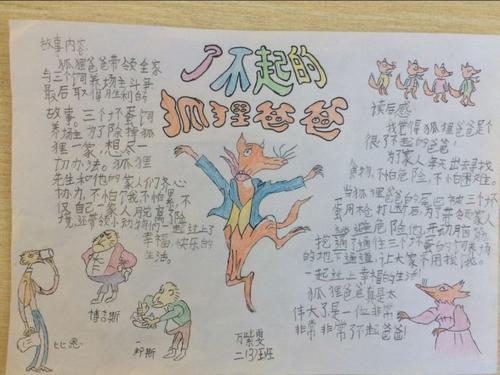 了不起的
狐狸爸爸
故事内容:
狐狸爸爸带领全家
与三个饲养场主斗争
最后取得胜利的
故事,三个坏蛋饲
养场主为了除掉狐
狸一家,想尽一
切办法。狐狸
先生和他的家人们齐心
协力,不怕苦不怕累,不
仅自己家人脱离了险
境,还带领小动物们一起过上了
幸福,快乐的
生活。
读后感:
我觉得狐狸爸爸是个
很了不起的爸爸!
为了家人每天出去寻找
食物,不怕危险,不怕困难。
当狐狸爸爸的尾巴被三个坏
蛋用枪打巡后,为了带领家人
躲避危险他开动脑筋,
挖通了通往三个坏蛋的饲养场
的地下通道,让大家不用挨饿。
一起过上幸福的生活!
狐狸爸爸真是太
伟大了,是一位非常
非常非常了不起爸爸!
博吉斯
比恩
邦斯
二(3)班